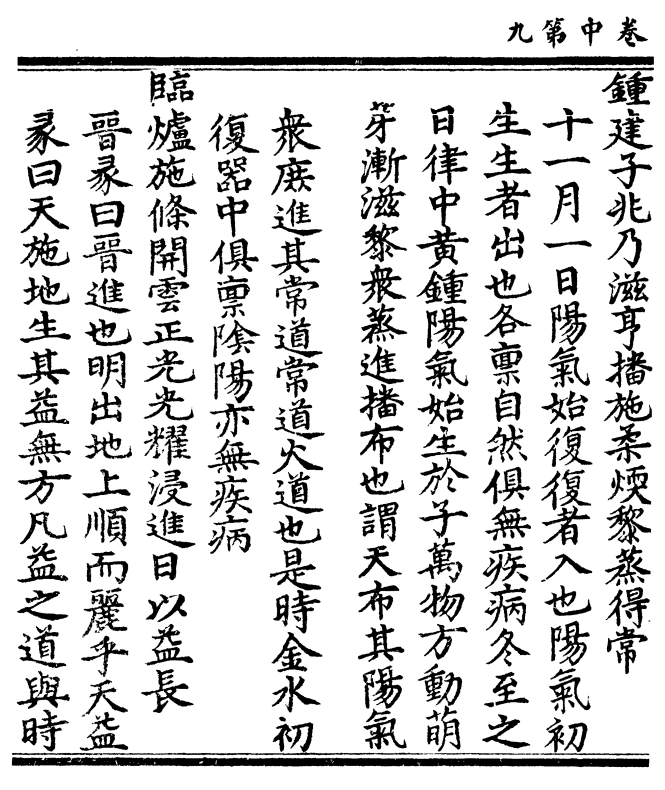 卷中第九
鍾建子兆乃滋亨播施柔煗黎蒸得常
十一月一日陽氣始復復者入也陽氣初
生生者出也各禀自然俱無疾病冬至之
日律中黃鍾陽氣始生於子萬物方動萌
芽漸滋黎衆蒸進播布也謂天布其陽氣
衆庶進其常道常道火道也是時金水初
復器中俱禀陰陽亦無疾病
臨爐施條開雲正光光耀浸進日以益長
晉彖曰晉進也明出地上順而麗乎天益
彖曰天施地生其益無方凡益之道與時